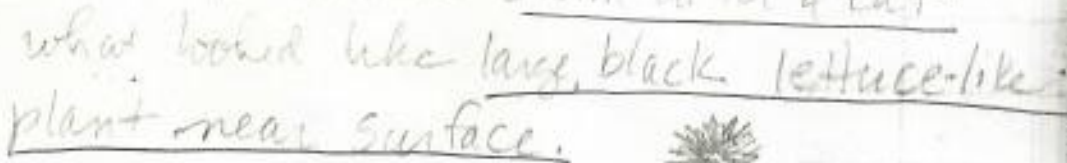 what looked like large, black lettuce-like
plant near surface.